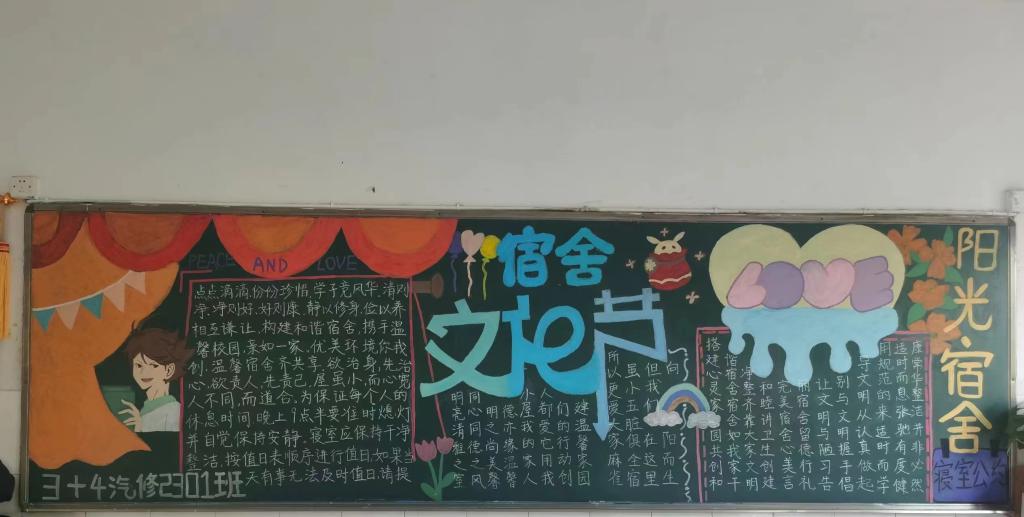 PEACE AND LOVE
点点滴滴,份份珍惜,学子竞风华,清则
净则好,好则康,静以修身,俭以养
相互谦让,构建和谐宿舍,携手温
馨校园,亲如一家,优美环境你我
创,温馨宿舍齐共享,欲治身,先治
心,欲责人,先责己,屋虽小,而心宽
人不同,而道合,为保证每个人的
休息时间晚上9点半要准时熄灯
并自觉保持安静,寝室应保持干净
整洁,按值日表顺序进行值日,如果当
天有事无法及时值日,请提
3+4汽修2301班
宿舍
文化节
向阳而生
但我们在这里
虽小五脏俱全宿
所以更爱家麻雀
建温馨家园
们的行动创
人都爱它用我
小屋的家人
德亦缘温馨
明之尚美馨
同心同德之风
明亮清雅之室
LOVE
康荣华整洁并非必然
造时而息张弛有度健
用规范的来适时而学
寻文明从认真做起
别与文明握手倡
让文明与陋习告
宿舍留德行礼
完美宿舍心美言
和睦讲卫生创建
净整齐靠大家文明
惜宿舍宿舍如我家干
搭建心灵家园共创和
阳光宿舍
寝室公约